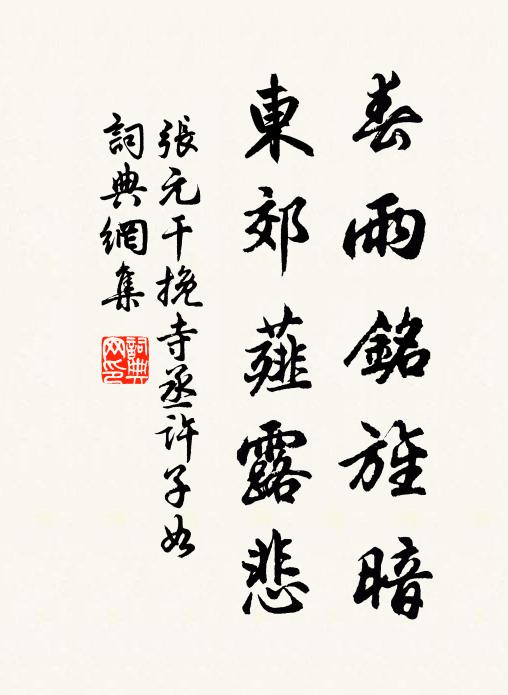 春雨銘旌暗
東郊薤露悲
張元干挽寺丞許子如
詞典網集
詞典網印